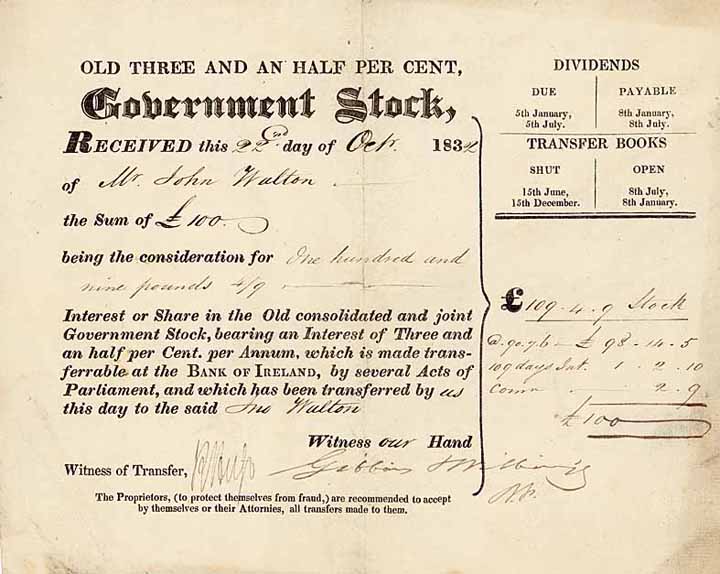 OLD THREE AND AN HALF PER CENT,
Government Stock,
RECEIVED this 22nd day of Octr. 1834
of Mr. John Walton
the Sum of £100
being the consideration for One hundred and
nine pounds 4/9
Interest or Share in the Old consolidated and joint
Government Stock, bearing an Interest of Three and
an half per Cent. per Annum, which is made trans-
ferrable at the BANK OF IRELAND, by several Acts of
Parliament, and which has been transferred by us
this day to the said Jno Walton
Witness our Hand
Witness of Transfer,
The Proprietors, (to protect themselves from fraud,) are recommended to accept
by themselves or their Attornies, all transfers made to them.
DIVIDENDS
DUE
5th January,
5th July.
PAYABLE
8th January,
8th July.
TRANSFER BOOKS
SHUT
15th June,
15th December.
OPEN
8th July,
8th January.
£ 109 - 4 - 9 Stock
£ 98 - 14 - 5
109 days Int. 1 - 2 - 10
Comn 2 - 9
£100